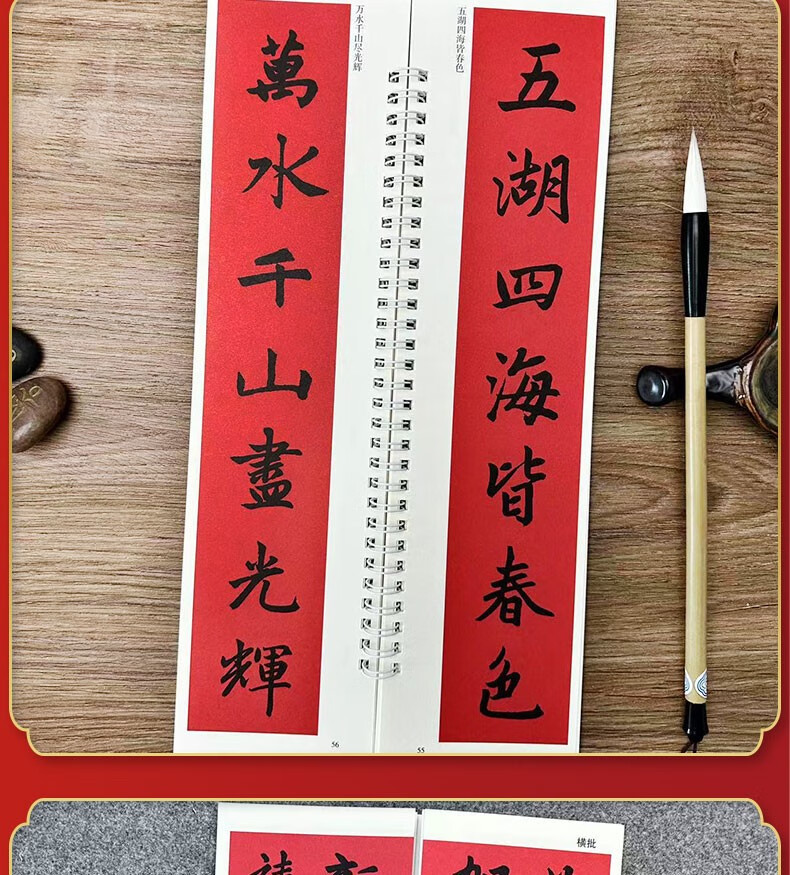 五湖四海皆春色
五湖四海皆春色
万水千山尽光辉
萬水千山盡光輝
56
55
横批